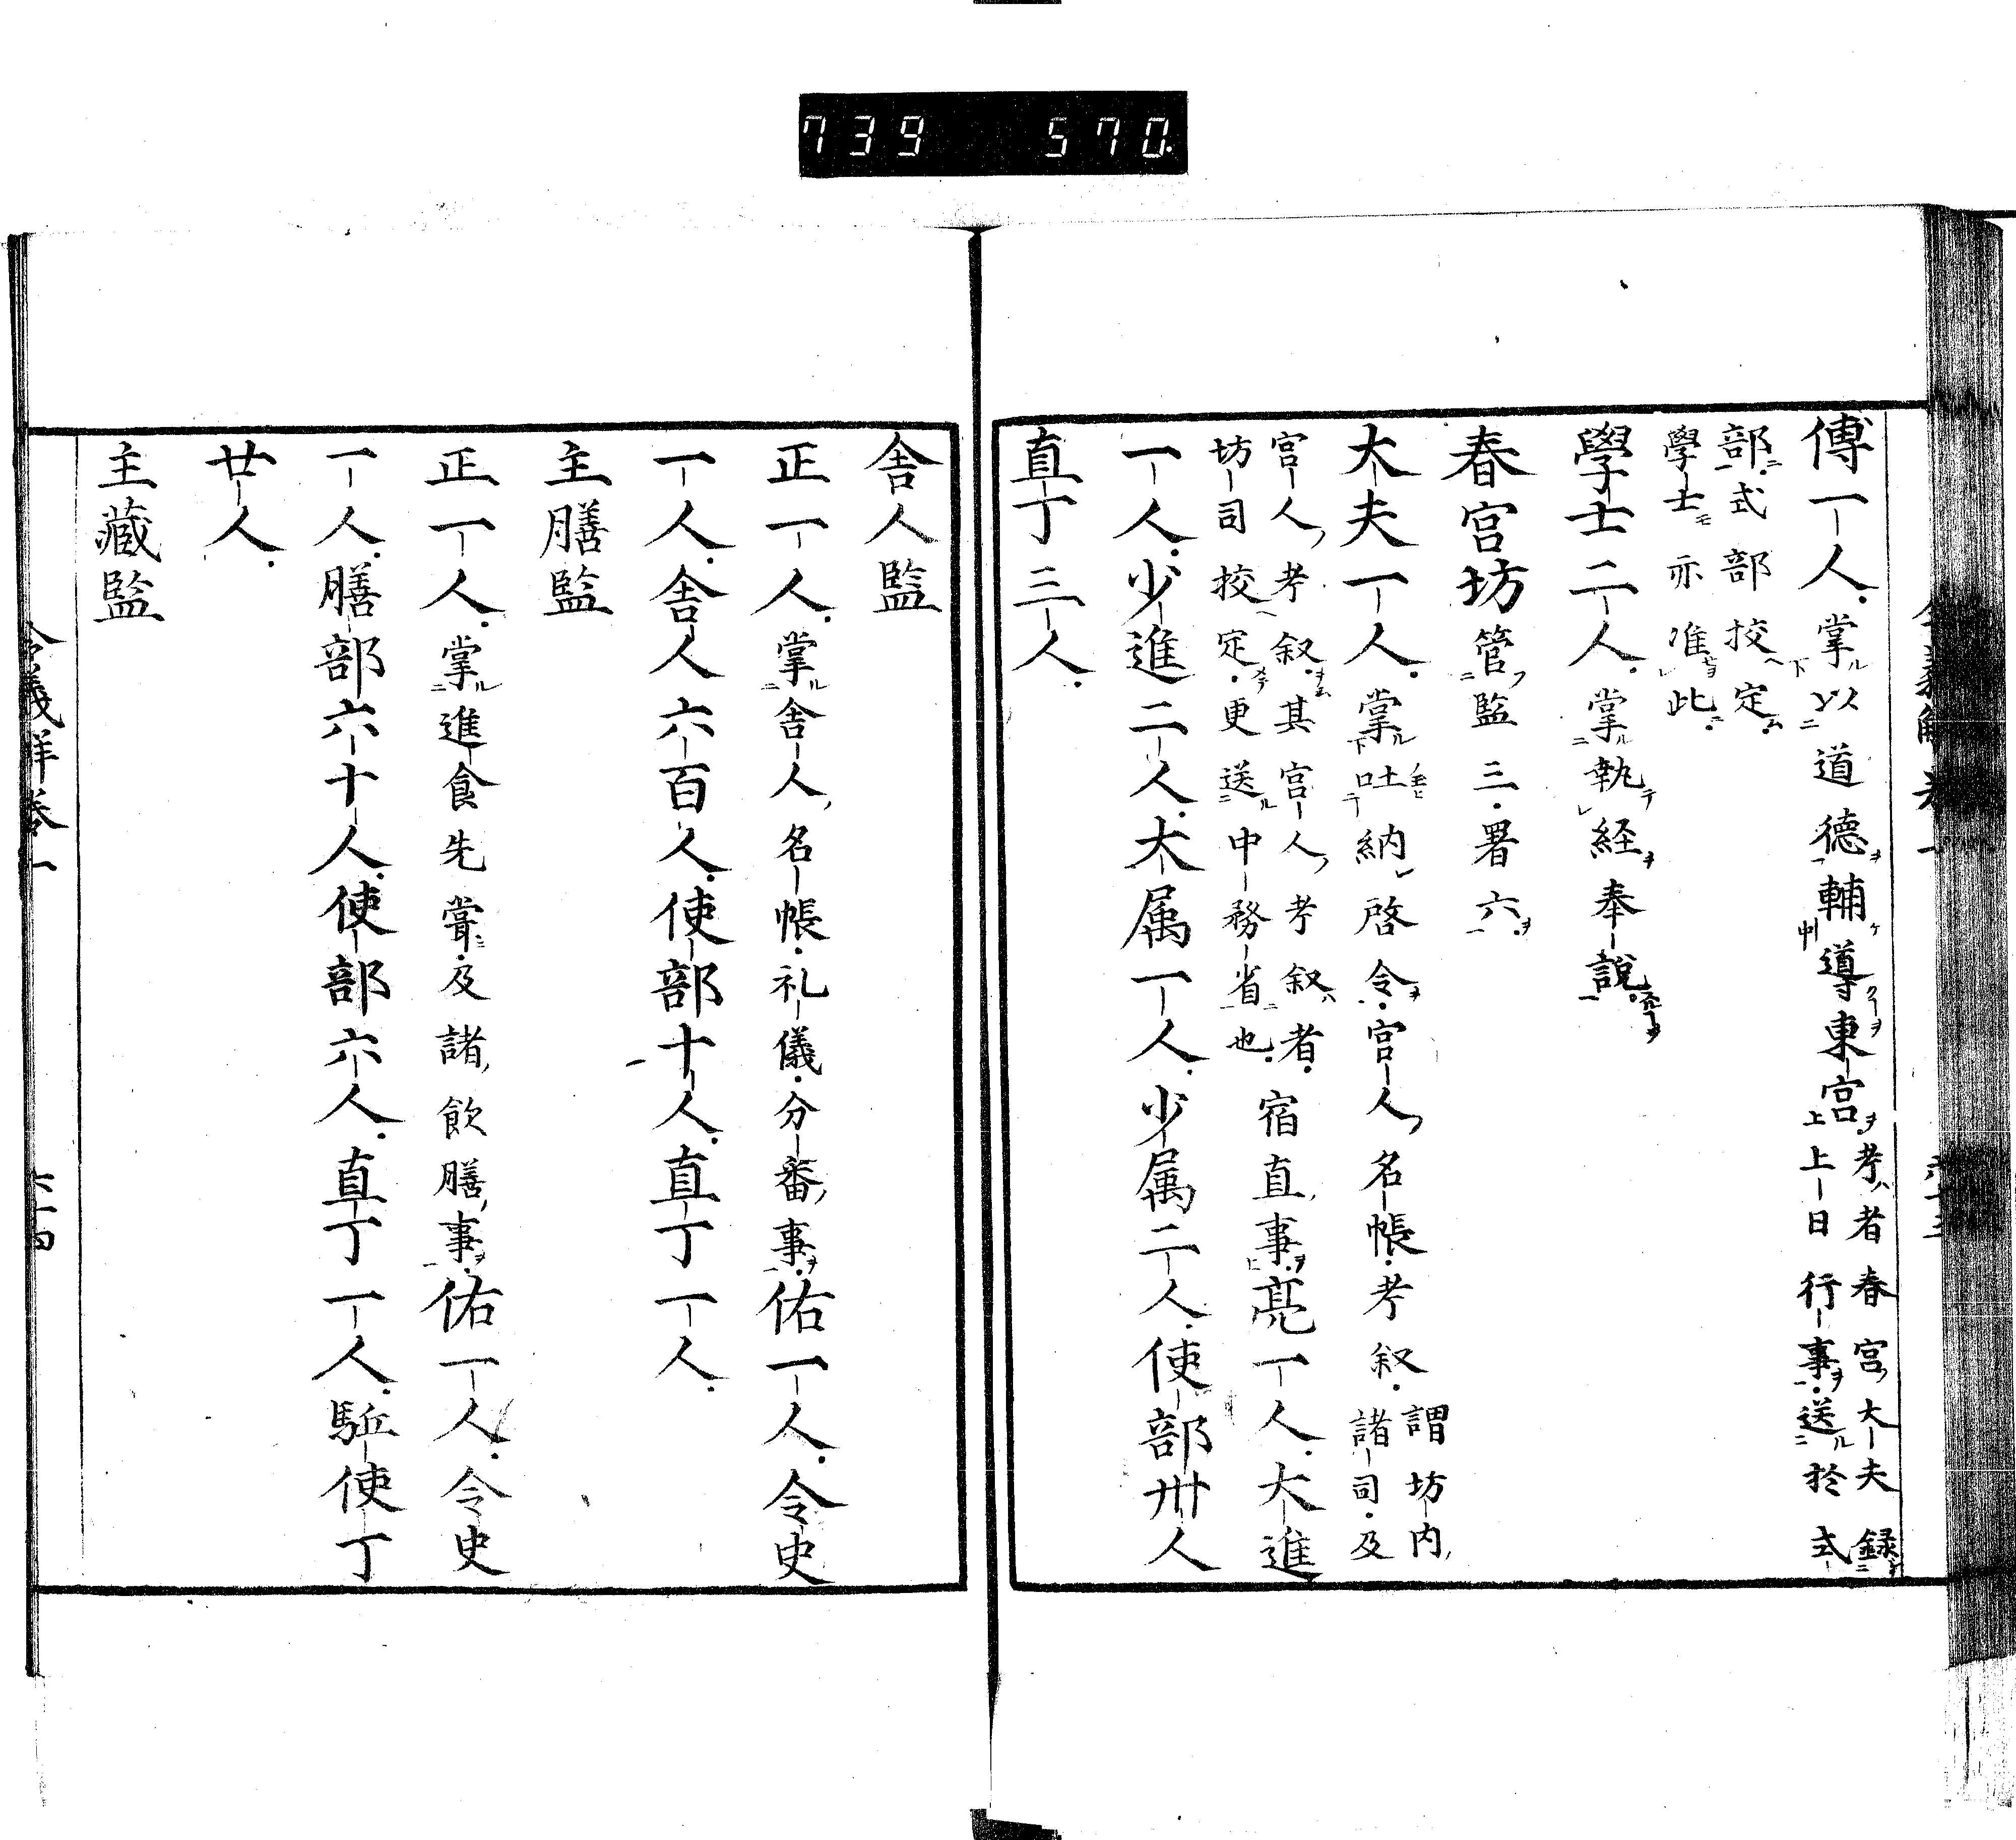 739 570
傅一人掌以道德輔導東宮考者春宮大夫録
上日行事送於式
部式部挍定
學士亦准此
學士二人掌執経奉說
春宮坊管監三署六
大夫一人掌吐納啓令宮人名帳考叙謂坊内
諸司及
宮人考叙其宮人考叙者
坊司挍定更送中務省也宿直事亮一人大進
一人少進二人大属一人少属二人使部卅人
直丁三人
舎人監
正一人掌舎人名帳礼儀分番事佑一人令史
一人舎人六百人使部十人直丁一人
主膳監
正一人掌進食先甞及諸飲膳事佑一人令史
一人膳部六十人使部六人直丁一人駈使丁
廿人
主藏監